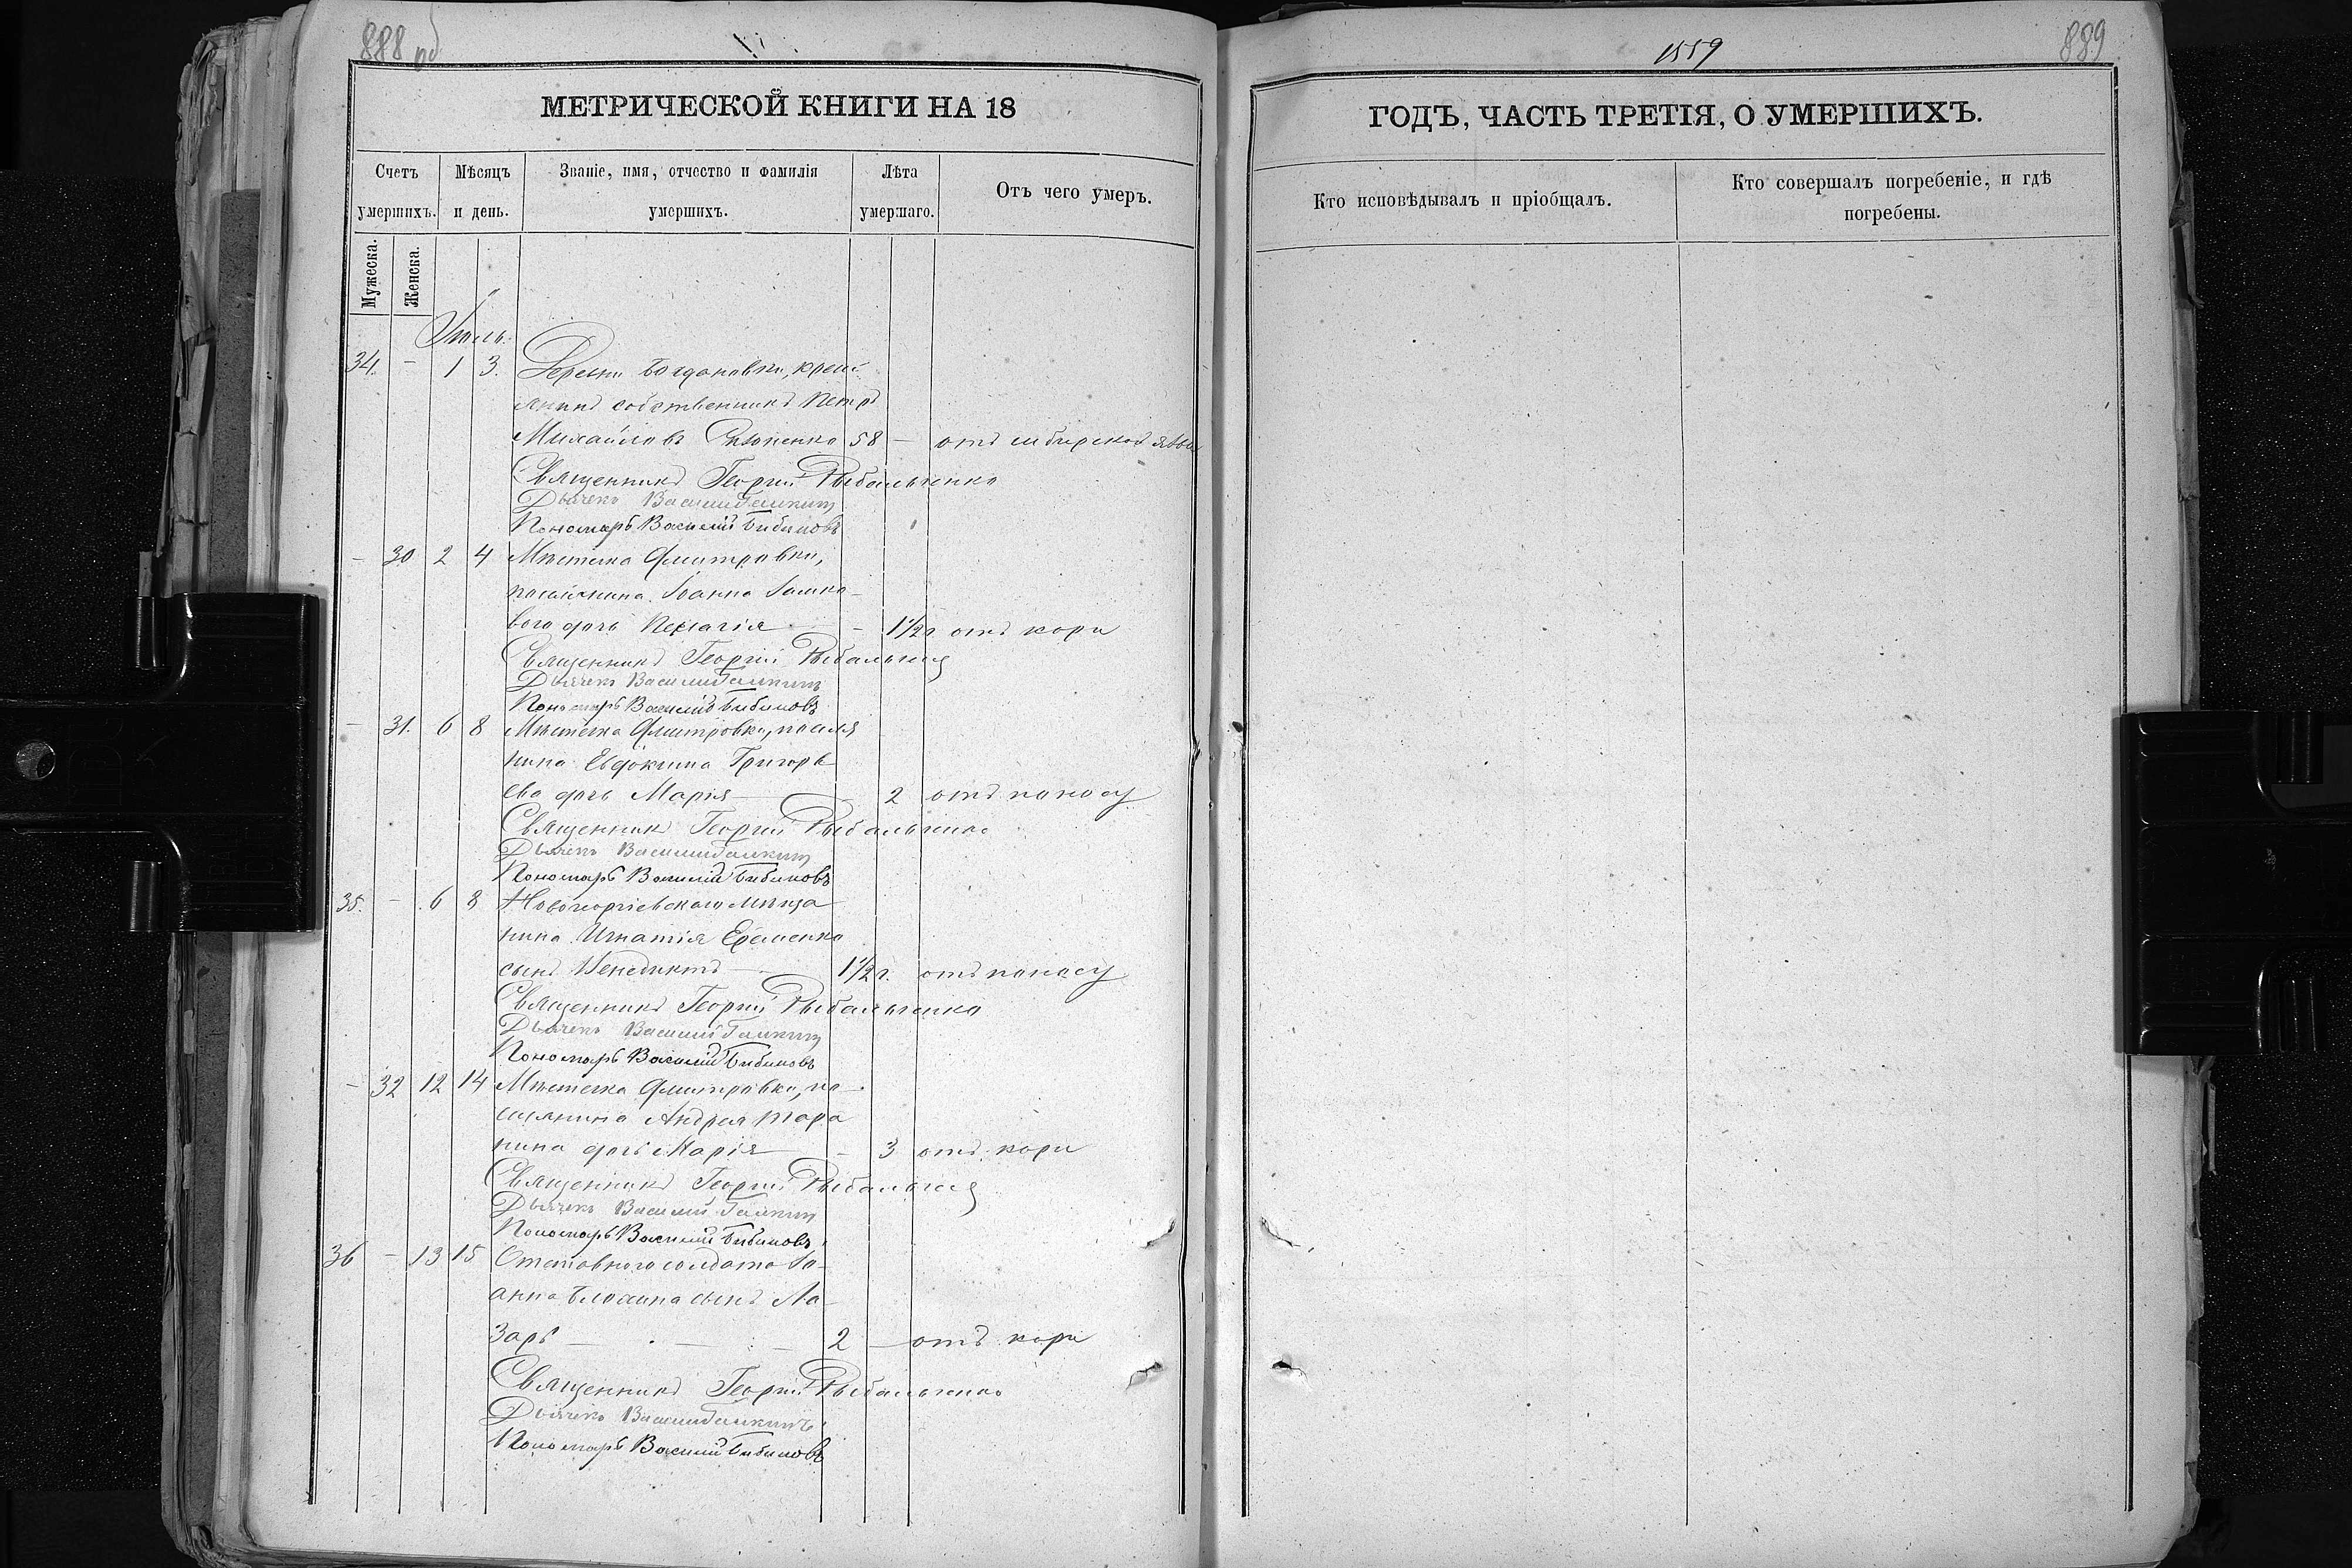 888 об
МЕТРИЧЕСКОЙ КНИГИ НА 18
Счетъ умершихъ.
Мѣсяцъ и день.
Званіе, имя, отчество и фамилія умершихъ.
Лѣта умершаго.
Отъ чего умеръ.
Мужеска.
Женска.
Іюль.
34. - 1 3. Деревни Богдановки, крест
янинъ собственникъ Петръ
Михайловъ 58 - отъ сибирской язвы
Священникъ Георгій Рыбальченко
Дьячекъ Василій Галкинъ
Пономарь Василій Бибиковъ
- 30 2 4 Мѣстечка Дмитровки,
поселянина Іоанна
вого дочь Пелагія - 1 1/2 г отъ кори
Священникъ Георгій Рыбальченко
Дьячекъ Василій Галкинъ
Пономарь Василій Бибиковъ
- 31. 6 8 Мѣстечка Дмитровки, поселя
нина Евдокима Григорь
ева дочь Марія - 2 отъ поносу
Священникъ Георгій Рыбальченко
Дьячекъ Василій Галкинъ
Пономарь Василій Бибиковъ
35. - 6 8 Новогеоргіевскаго мѣща
нина Игнатія Еременко
сынъ Венедиктъ - 1 1/2 г. отъ поносу
Священникъ Георгій Рыбальченко
Дьячекъ Василій Галкинъ
Пономарь Василій Бибиковъ
- 32 12 14 Мѣстечка Дмитровки, по-
селянина Андрея Тара
нина дочь Марія - 3 отъ кори
Священникъ Георгій Рыбальченко
Дьячекъ Василій Галкинъ
Пономарь Василій Бибиковъ
36 - 13 15 Отставного солдата Іо-
анна сынъ Ла-
зарь - 2 - отъ кори
Священникъ Георгій Рыбальченко
Дьячекъ Василій Галкинъ
Пономарь Василій Бибиковъ
1559
889
ГОДЪ, ЧАСТЬ ТРЕТІЯ, О УМЕРШИХЪ.
Кто исповѣдывалъ и пріобщалъ.
Кто совершалъ погребеніе, и гдѣ
погребены.